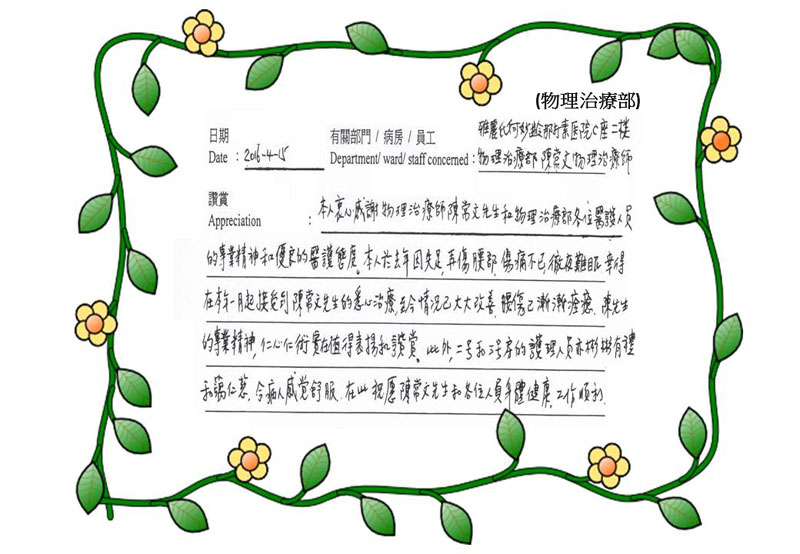 (物理治療部)
日期 有關部門 / 病房 / 員工 雅麗氏何妙齡那打素医院心座二楼
Date : 2016-4-15 Department/ ward/ staff concerned : 物理治療部 陳常文物理治療師
讚賞
Appreciation : 本人衷心感謝物理治療師陳常文先生和物理治療部各位醫護人員
的專業精神和優良的醫護態度。本人於去年因失足,再傷腰部,傷痛不已,徹夜難眠,幸得
在本年一月起接受到陳常文先生的悉心治療,至今情況已大大改善,腰傷已漸漸痊癒。陳先生
的專業精神,仁心仁術實在值得表揚和讚賞。此外,二号和3号房的護理人员亦彬彬有禮
和藹仁慈,令病人感覚舒服。在此祝愿陳常文先生和各位人員身體健康,工作順利。